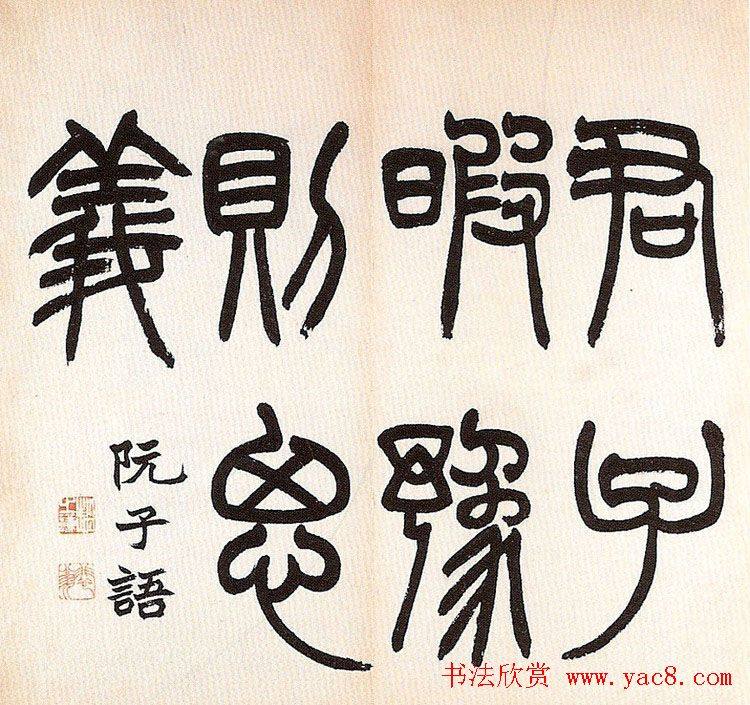 君子
暇豫
則思
義
阮子語
书法欣赏 www.yac8.com